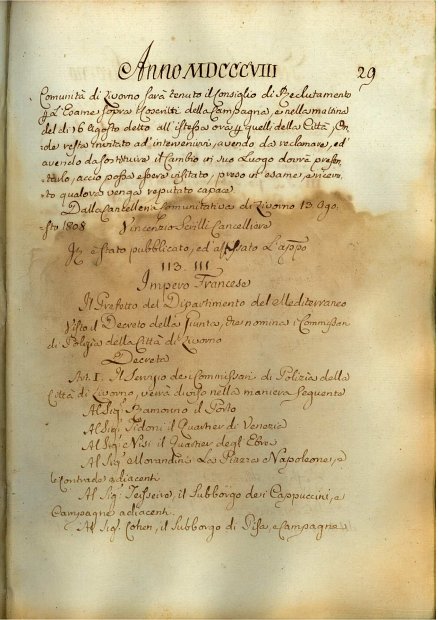 Anno MDCCCVIII 29
Comunità di Livorno sarà tenuto il Consiglio di Reclutamento
p l'Esame sopra i Coscritti della Campagna, e nella mattina
del dì 16 Agosto detto all'istessa ora p quelli della Città, On,
de resta invitato ad intervenirvi, avendo da reclamare, ed
avendo da sostituire il Cambio in suo Luogo dovrà presen,
tarlo, acciò possa essere visitato, preso in esame, e ricevu,
to qualora venga reputato capace
Dalla Cancelleria Comunitativa di Livorno 13 Ago,
sto 1808 Vincenzio Serilli Cancelliere
è stato pubblicato, ed affissato L'aspo
113. III
Impero Francese
Il Prefetto del Dipartimento del Mediterraneo
Visto il Decreto della Giunta, che nomina i Commissari
di Polizia della Città di Livorno
Decreta
Art. I. Il Servizio dei Commissari di Polizia della
Città di Livorno, verrà diviso nella maniera seguente
Al Sig.r Bamorino il Porto
Al Sig.r Tidoni il Quartier di Venezia
Al Sig.r Nisi il Quartier degl'Ebrei
Al Sig.r Morandini La Piazza Napoleone, e
le Contrade adiacenti
Al Sig.r Teisseire, il Subborgo dei Cappuccini, e
Campagne adiacenti
Al Sig.r Cohen, il Subborgo di Pisa, e Campagne